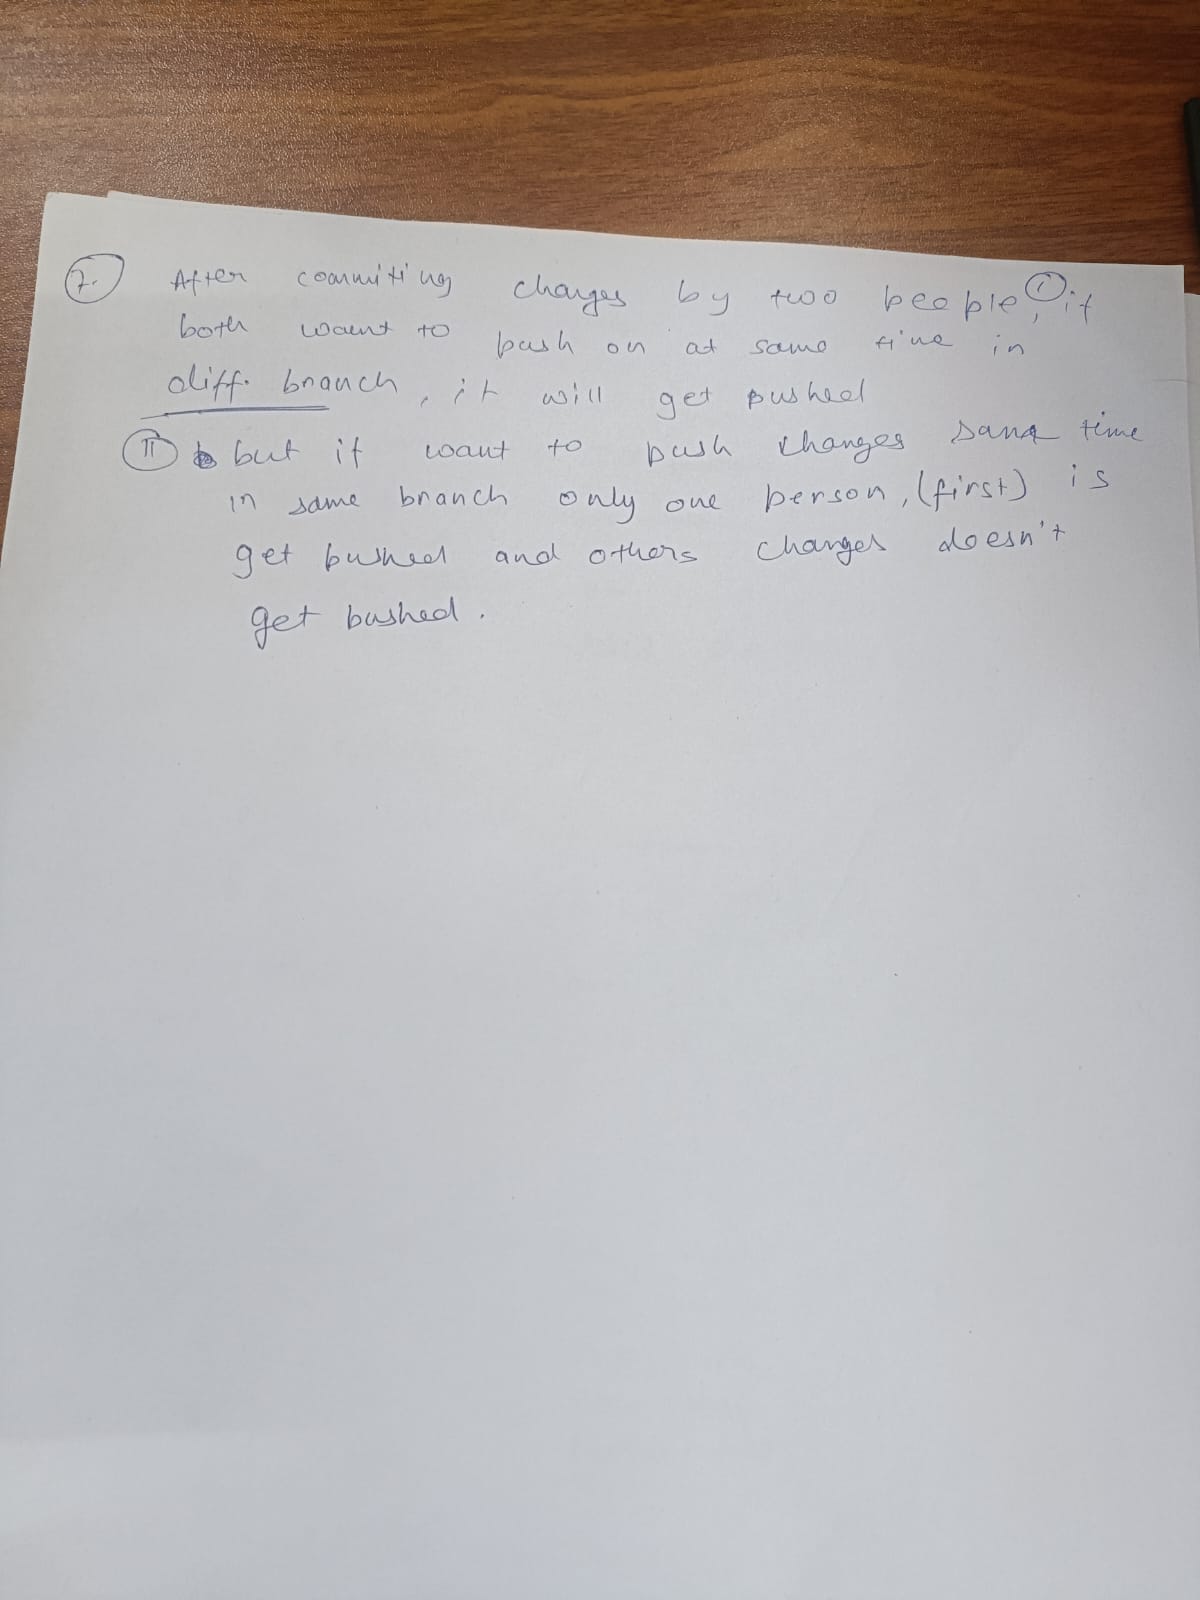 7. After commiting changes by two people, (I) if
both want to push on at same time in
diff. branch, it will get pushed
(II) but if want to push changes same time
in same branch only one person, (first) is
get pushed and others changes doesn't
get pushed.